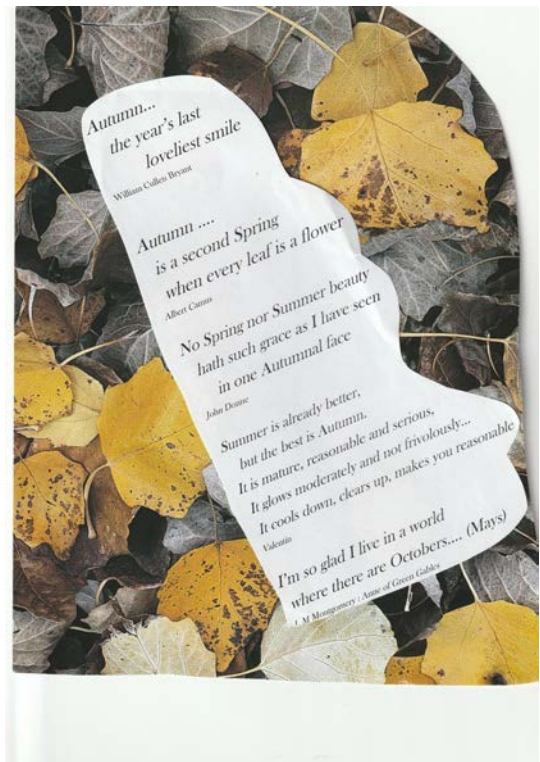 Autumn...
the year's last
loveliest smile
William Cullen Bryant
Autumn ....
is a second Spring
when every leaf is a flower
Albert Camus
No Spring nor Summer beauty
hath such grace as I have seen
in one Autumnal face
John Donne
Summer is already better,
but the best is Autumn.
It is mature, reasonable and serious,
It glows moderately and not frivolously...
It cools down, clears up, makes you reasonable
Valentin
I'm so glad I live in a world
where there are Octobers.... (Mays)
L M Montgomery : Anne of Green Gables